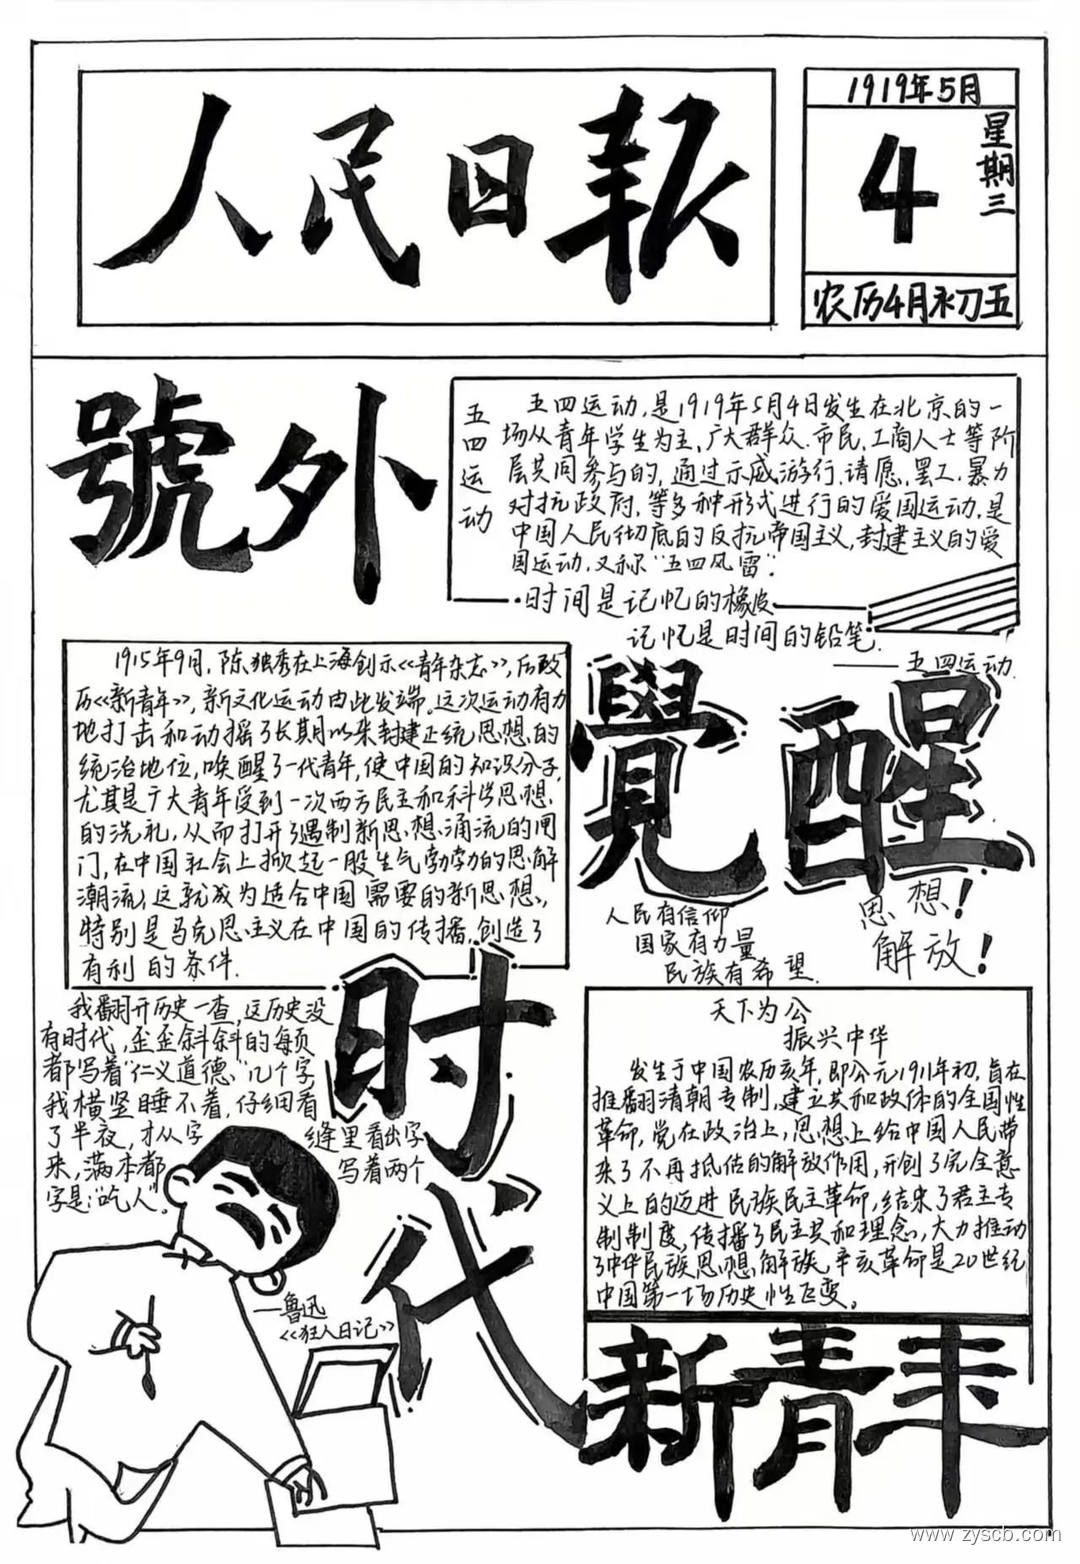 人民日報
1919年5月
4
星期三
农历4月初五
號外
五四运动
五四运动,是1919年5月4日发生在北京的一
场从青年学生为主,广大群众.市民,工商人士等阶
层共同参与的,通过示威游行,请愿,罢工.暴力
对抗政府,等多种形式进行的爱国运动,是
中国人民彻底的反抗帝国主义,封建主义的爱
国运动,又称“五四风雷”.
时间是记忆的橡皮
记忆是时间的铅笔.
——五四运动
1915年9月,陈独秀在上海创示<<青年杂志>>,后改
历<<新青年>>,新文化运动由此发端。这次运动有力
地打击和动摇了长期以来封建正统思想的
统治地位,唤醒了一代青年,使中国的知识分子,
尤其是广大青年受到一次西方民主和科学思想
的洗礼,从而打开了遏制新思想涌流的闸
门,在中国社会上掀起一股生气勃勃的思解
潮流,这就成为适合中国需要的新思想,
特别是马克思主义在中国的传播,创造了
有利的条件.
覺醒
人民有信仰
国家有力量
民族有希望.
思想!
解放!
时代
我翻开历史一查,这历史没
有时代,歪歪斜斜的每页
都写着“仁义道德”几个字
我横竖睡不着,仔细看
了半夜,才从字缝里看出字
来,满本都写着两个
字是:“吃人”。
—鲁迅
<<狂人日记>>
天下为公
振兴中华
发生于中国农历亥年,即公元1911年初,旨在
推翻清朝专制,建立共和政体的全国性
革命,党在政治上,思想上给中国人民带
来了不再抵估的解放作用,开创了完全意
义上的迈进民族民主革命,结束了君主专
制制度,传播了民主共和理念,大力推动
了中华民族思想解族,辛亥革命是20世纪
中国第一场历史性巨变。
新青年
www.zyscb.com